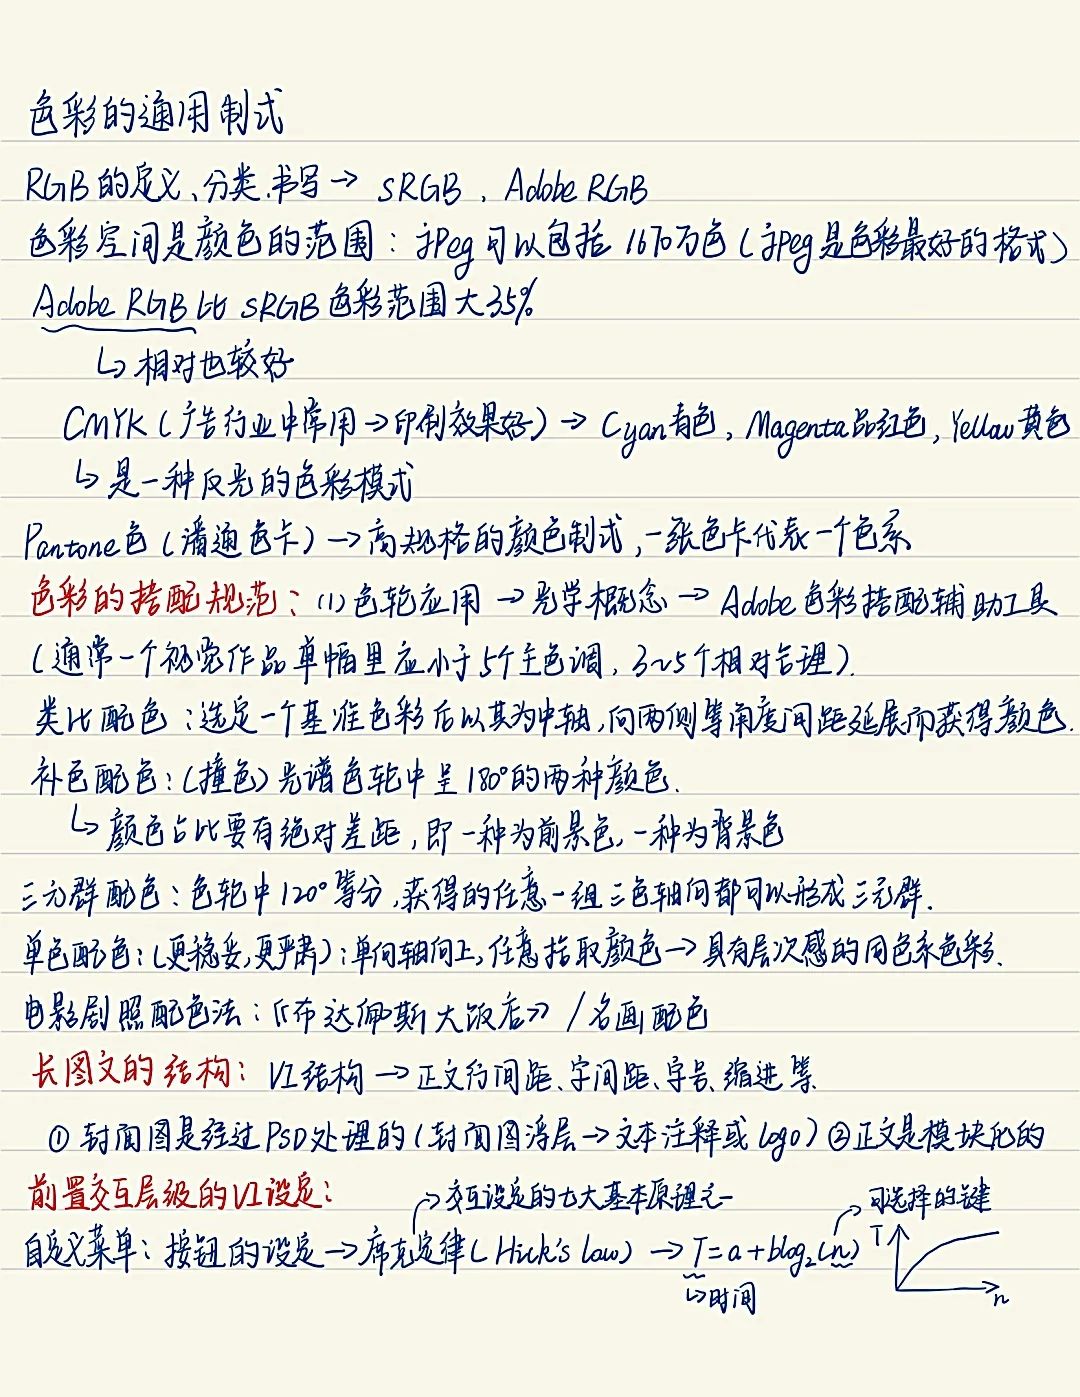 色彩的通用制式
RGB的定义、分类、书写→ sRGB、Adobe RGB
色彩空间是颜色的范围：jpeg可以包括1670万色（jpeg是色彩最好的格式）
Adobe RGB比sRGB色彩范围大35%
↳相对也较好
CMYK（广告行业中常用→印刷效果好）→ Cyan青色，Magenta品红色，Yellow黄色
↳是一种反光的色彩模式
Pantone色（潘通色卡）→高规格的颜色制式，一张色卡代表一个色系
色彩的搭配规范：(1)色轮应用→光学概念→Adobe色彩搭配辅助工具
（通常一个视觉作品单幅里应小于5个主色调，3~5个相对合理）.
类比配色：选定一个基准色彩后以其为中轴，向两侧等角度间距延展而获得颜色.
补色配色：（撞色）光谱色轮中呈180°的两种颜色.
↳颜色占比要有绝对差距，即一种为前景色，一种为背景色
三元群配色：色轮中120°等分，获得的任意一组三色轴向都可以形成三元群.
单色配色：（更稳妥，更严肃）：单向轴向上，任意拾取颜色→具有层次感的同色系色彩.
电影剧照配色法：《布达佩斯大饭店》/名画配色
长图文的结构：VI结构→正文行间距、字间距、字号、缩进等
①封面图是经过PSD处理的（封面图浮层→文本注释或logo）②正文是模块化的
前置交互层级的VI设定：
交互设定的七大基本原理之一
可选择的键
自定义菜单：按钮的设定→席克定律（Hick's law）→T=a+blog₂(n)
T
↳时间
n